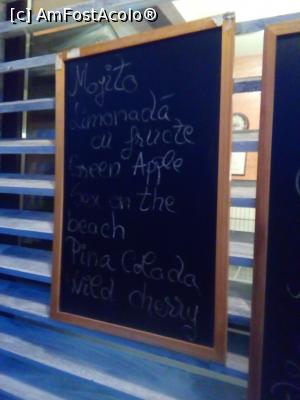 [c] AmFostAcolo®
Mojito
Limonadă
cu fructe
Green Apple
Sex on the
beach
Pina Colada
Wild cherry